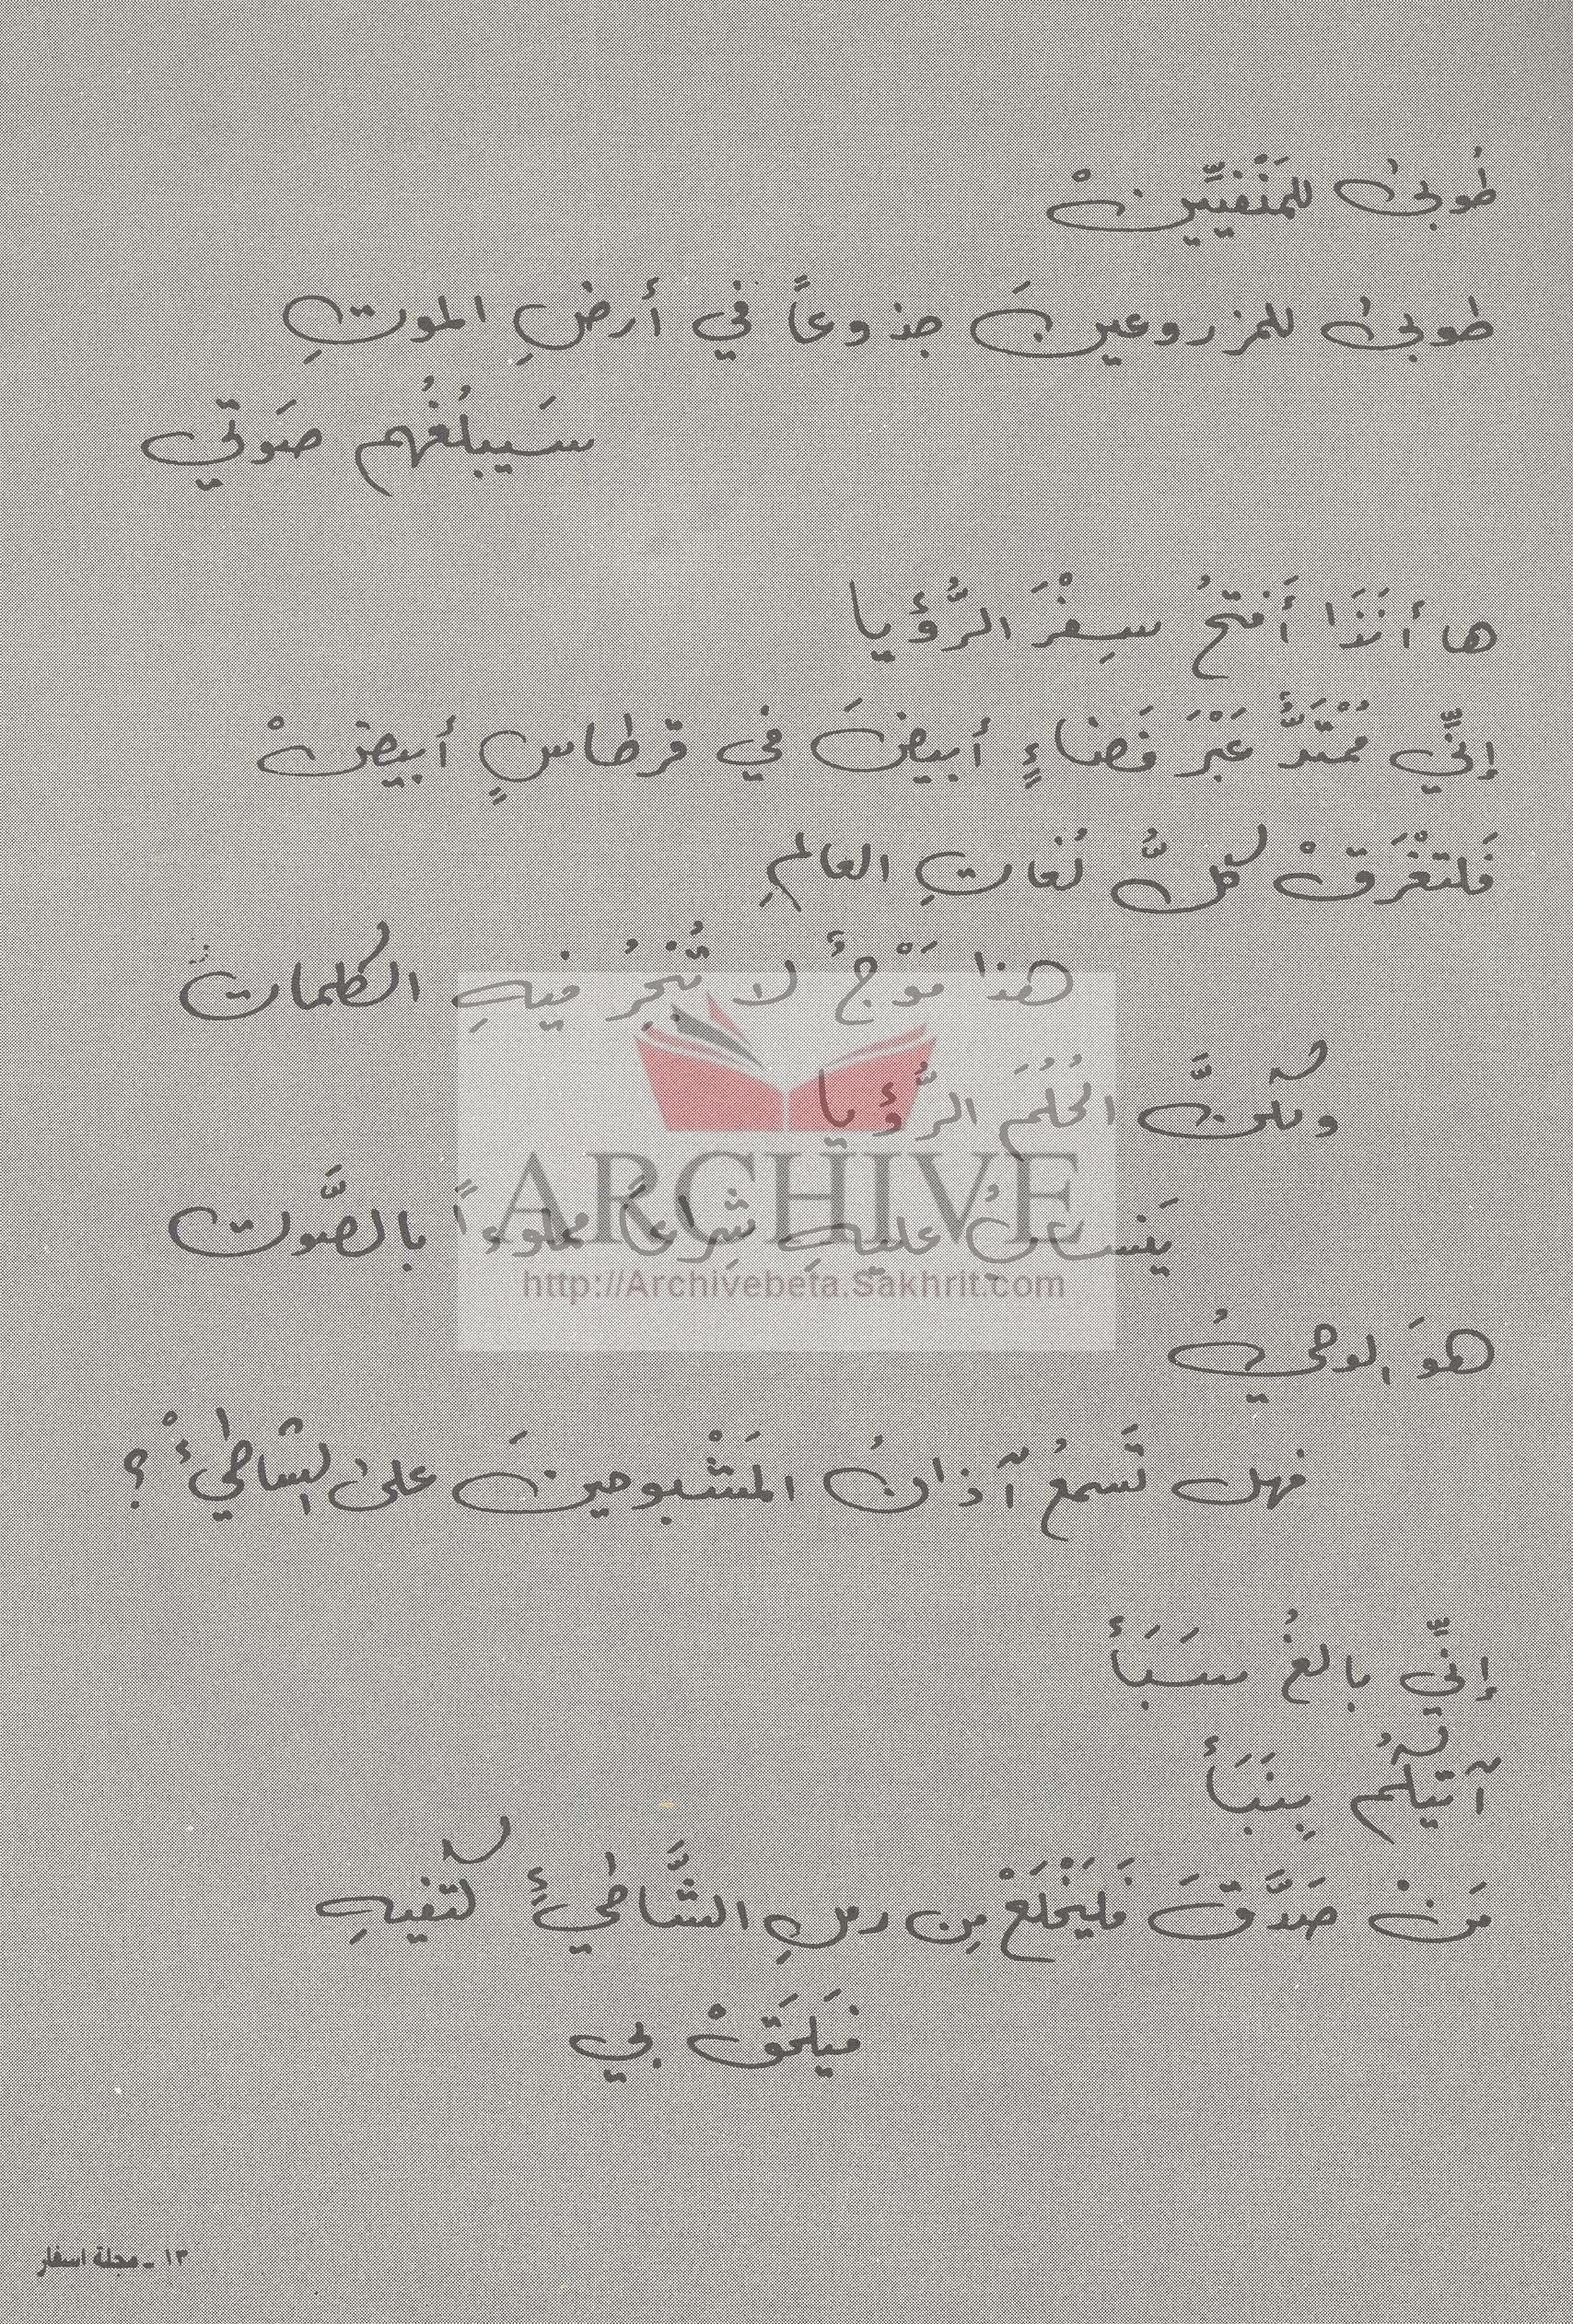 طُوبىٰ للمَنْفيِّينْ
طوبىٰ للمزروعينَ جذوعاً في أرضِ الموتِ
سَيبلُغُهم صَوتي
ها أنَذَا أَفتحُ سِفْرَ الرُّؤيا
إنّي مُمْتَدٌّ عَبْرَ فَضاءٍ أبيضَ في قرطاسٍ أبيضْ
فَلتغْرَقْ كلُّ لُغاتِ العالمِ
هذا مَوْجٌ لا تُبْحِرُ فيهِ الكلماتُ
ولكنَّ الحُلُمَ الرُّؤيا
يَنسابُ عليهِ شِراعاً مملوءاً بالصَّوت
هوَ الوحيُ
فهل تَسمعُ آذانُ المَشْبوحينَ على الشاطئْ ؟
إنِّي بالغُ سَبَأ
آتيكُم بِنَبَأ
مَنْ صَدَّقَ فَليَخْلَعْ مِن رملِ الشَّاطئِ كتفيهِ
فيَلحَقْ بي
ARCHIVE
http://Archivebeta.Sakhrit.com
١٣ ـ مجلة اسفار